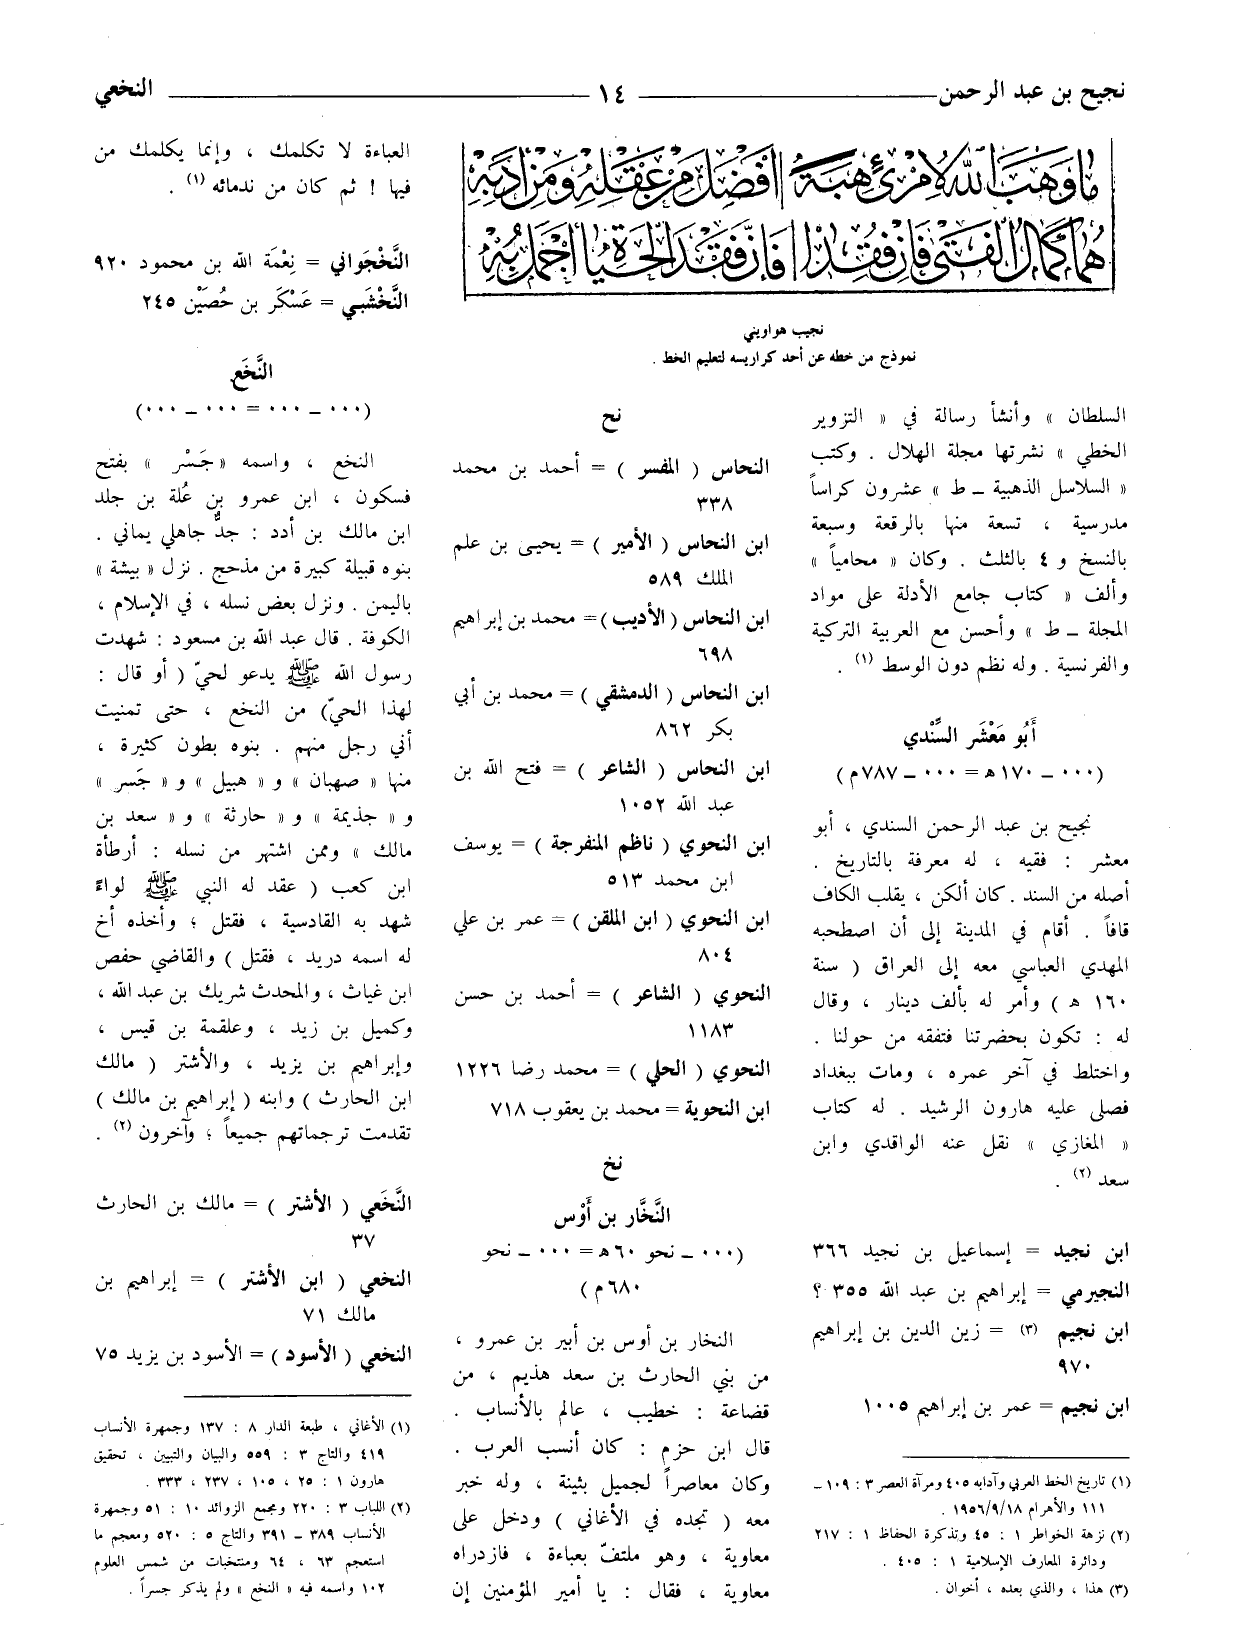 نجيح بن عبد الرحمن ١٤ النخعي
ما وهب الله لامرئ هبة أفضل من عقله ومن أدبه
هما كمال الفتى فإن فقدا فإن فقد الحياة أجمل به
نجيب هواويني
نموذج من خطه عن أحد كراريسه لتعليم الخط .
السلطان » وأنشأ رسالة في « التزوير
الخطي » نشرتها مجلة الهلال . وكتب
« السلاسل الذهبية ـ ط » عشرون كراساً
مدرسية ، تسعة منها بالرقعة وسبعة
بالنسخ و ٤ بالثلث . وكان « محامياً »
وألف « كتاب جامع الأدلة على مواد
المجلة ـ ط » وأحسن مع العربية التركية
والفرنسية . وله نظم دون الوسط (١) .
أَبُو مَعْشَر السِّنْدي
(٠٠٠ ـ ١٧٠ هـ = ٠٠٠ ـ ٧٨٧ م)
نجيح بن عبد الرحمن السندي ، أبو
معشر : فقيه ، له معرفة بالتاريخ .
أصله من السند . كان ألكن ، يقلب الكاف
قافاً . أقام في المدينة إلى أن اصطحبه
المهدي العباسي معه إلى العراق ( سنة
١٦٠ هـ ) وأمر له بألف دينار ، وقال
له : تكون بحضرتنا فتفقه من حولنا .
واختلط في آخر عمره ، ومات ببغداد
فصلى عليه هارون الرشيد . له كتاب
« المغازي » نقل عنه الواقدي وابن
سعد (٢) .
ابن نجيد = إسماعيل بن نجيد ٣٦٦
النجيرمي = إبراهيم بن عبد الله ٣٥٥ ؟
ابن نجيم (٣) = زين الدين بن إبراهيم
٩٧٠
ابن نجيم = عمر بن إبراهيم ١٠٠٥
(١) تاريخ الخط العربي وآدابه ٤٠٥ ومرآة العصر ٣ : ١٠٩ ـ
١١١ والأهرام ١٩٥٦/٩/١٨ .
(٢) نزهة الخواطر ١ : ٤٥ وتذكرة الحفاظ ١ : ٢١٧
ودائرة المعارف الإسلامية ١ : ٤٠٥ .
(٣) هذا ، والذي بعده ، أخوان .
نح
النحاس ( المفسر ) = أحمد بن محمد
٣٣٨
ابن النحاس ( الأمير ) = يحيى بن علم
الملك ٥٨٩
ابن النحاس ( الأديب ) = محمد بن إبراهيم
٦٩٨
ابن النحاس ( الدمشقي ) = محمد بن أبي
بكر ٨٦٢
ابن النحاس ( الشاعر ) = فتح الله بن
عبد الله ١٠٥٢
ابن النحوي ( ناظم المنفرجة ) = يوسف
ابن محمد ٥١٣
ابن النحوي ( ابن الملقن ) = عمر بن علي
٨٠٤
النحوي ( الشاعر ) = أحمد بن حسن
١١٨٣
النحوي ( الحلي ) = محمد رضا ١٢٢٦
ابن النحوية = محمد بن يعقوب ٧١٨
نخ
النَّخَّار بن أَوْس
(٠٠٠ ـ نحو ٦٠ هـ = ٠٠٠ ـ نحو
٦٨٠ م )
النخار بن أوس بن أبير بن عمرو ،
من بني الحارث بن سعد هذيم ، من
قضاعة : خطيب ، عالم بالأنساب .
قال ابن حزم : كان أنسب العرب .
وكان معاصراً لجميل بثينة ، وله خبر
معه ( تجده في الأغاني ) ودخل على
معاوية ، وهو ملتفّ بعباءة ، فازدراه
معاوية ، فقال : يا أمير المؤمنين إن
العباءة لا تكلمك ، وإنما يكلمك من
فيها ! ثم كان من ندمائه (١) .
النَّخْجَواني = نِعْمَة الله بن محمود ٩٢٠
النَّخْشَبي = عَسْكَر بن حُصَيْن ٢٤٥
النَّخَع
(٠٠٠ ـ ٠٠٠ = ٠٠٠ ـ ٠٠٠)
النخع ، واسمه « جَسْر » بفتح
فسكون ، ابن عمرو بن عُلة بن جلد
ابن مالك بن أدد : جدٌّ جاهلي يماني .
بنوه قبيلة كبيرة من مذحج . نزل « بيشة »
باليمن . ونزل بعض نسله ، في الإسلام ،
الكوفة . قال عبد الله بن مسعود : شهدت
رسول الله ﷺ يدعو لحيّ ( أو قال :
لهذا الحيّ) من النخع ، حتى تمنيت
أني رجل منهم . بنوه بطون كثيرة ،
منها « صهبان » و « هبيل » و « جَسر »
و « جذيمة » و « حارثة » و « سعد بن
مالك » وممن اشتهر من نسله : أرطأة
ابن كعب ( عقد له النبي ﷺ لواءً
شهد به القادسية ، فقتل ؛ وأخذه أخ
له اسمه دريد ، فقتل ) والقاضي حفص
ابن غياث ، والمحدث شريك بن عبد الله ،
وكميل بن زيد ، وعلقمة بن قيس ،
وإبراهيم بن يزيد ، والأشتر ( مالك
ابن الحارث ) وابنه ( إبراهيم بن مالك )
تقدمت ترجماتهم جميعاً ؛ وآخرون (٢) .
النَّخَعي ( الأشتر ) = مالك بن الحارث
٣٧
النخعي ( ابن الأشتر ) = إبراهيم بن
مالك ٧١
النخعي ( الأسود ) = الأسود بن يزيد ٧٥
(١) الأغاني ، طبعة الدار ٨ : ١٣٧ وجمهرة الأنساب
٤١٩ والتاج ٣ : ٥٥٩ والبيان والتبيين ، تحقيق
هارون ١ : ٢٥ ، ١٠٥ ، ٢٣٧ ، ٣٣٣ .
(٢) اللباب ٣ : ٢٢٠ ومجمع الزوائد ١٠ : ٥١ وجمهرة
الأنساب ٣٨٩ ـ ٣٩١ والتاج ٥ : ٥٢٠ ومعجم ما
استعجم ٦٣ ، ٦٤ ومنتخبات من شمس العلوم
١٠٢ واسمه فيه « النخع » ولم يذكر جسراً .